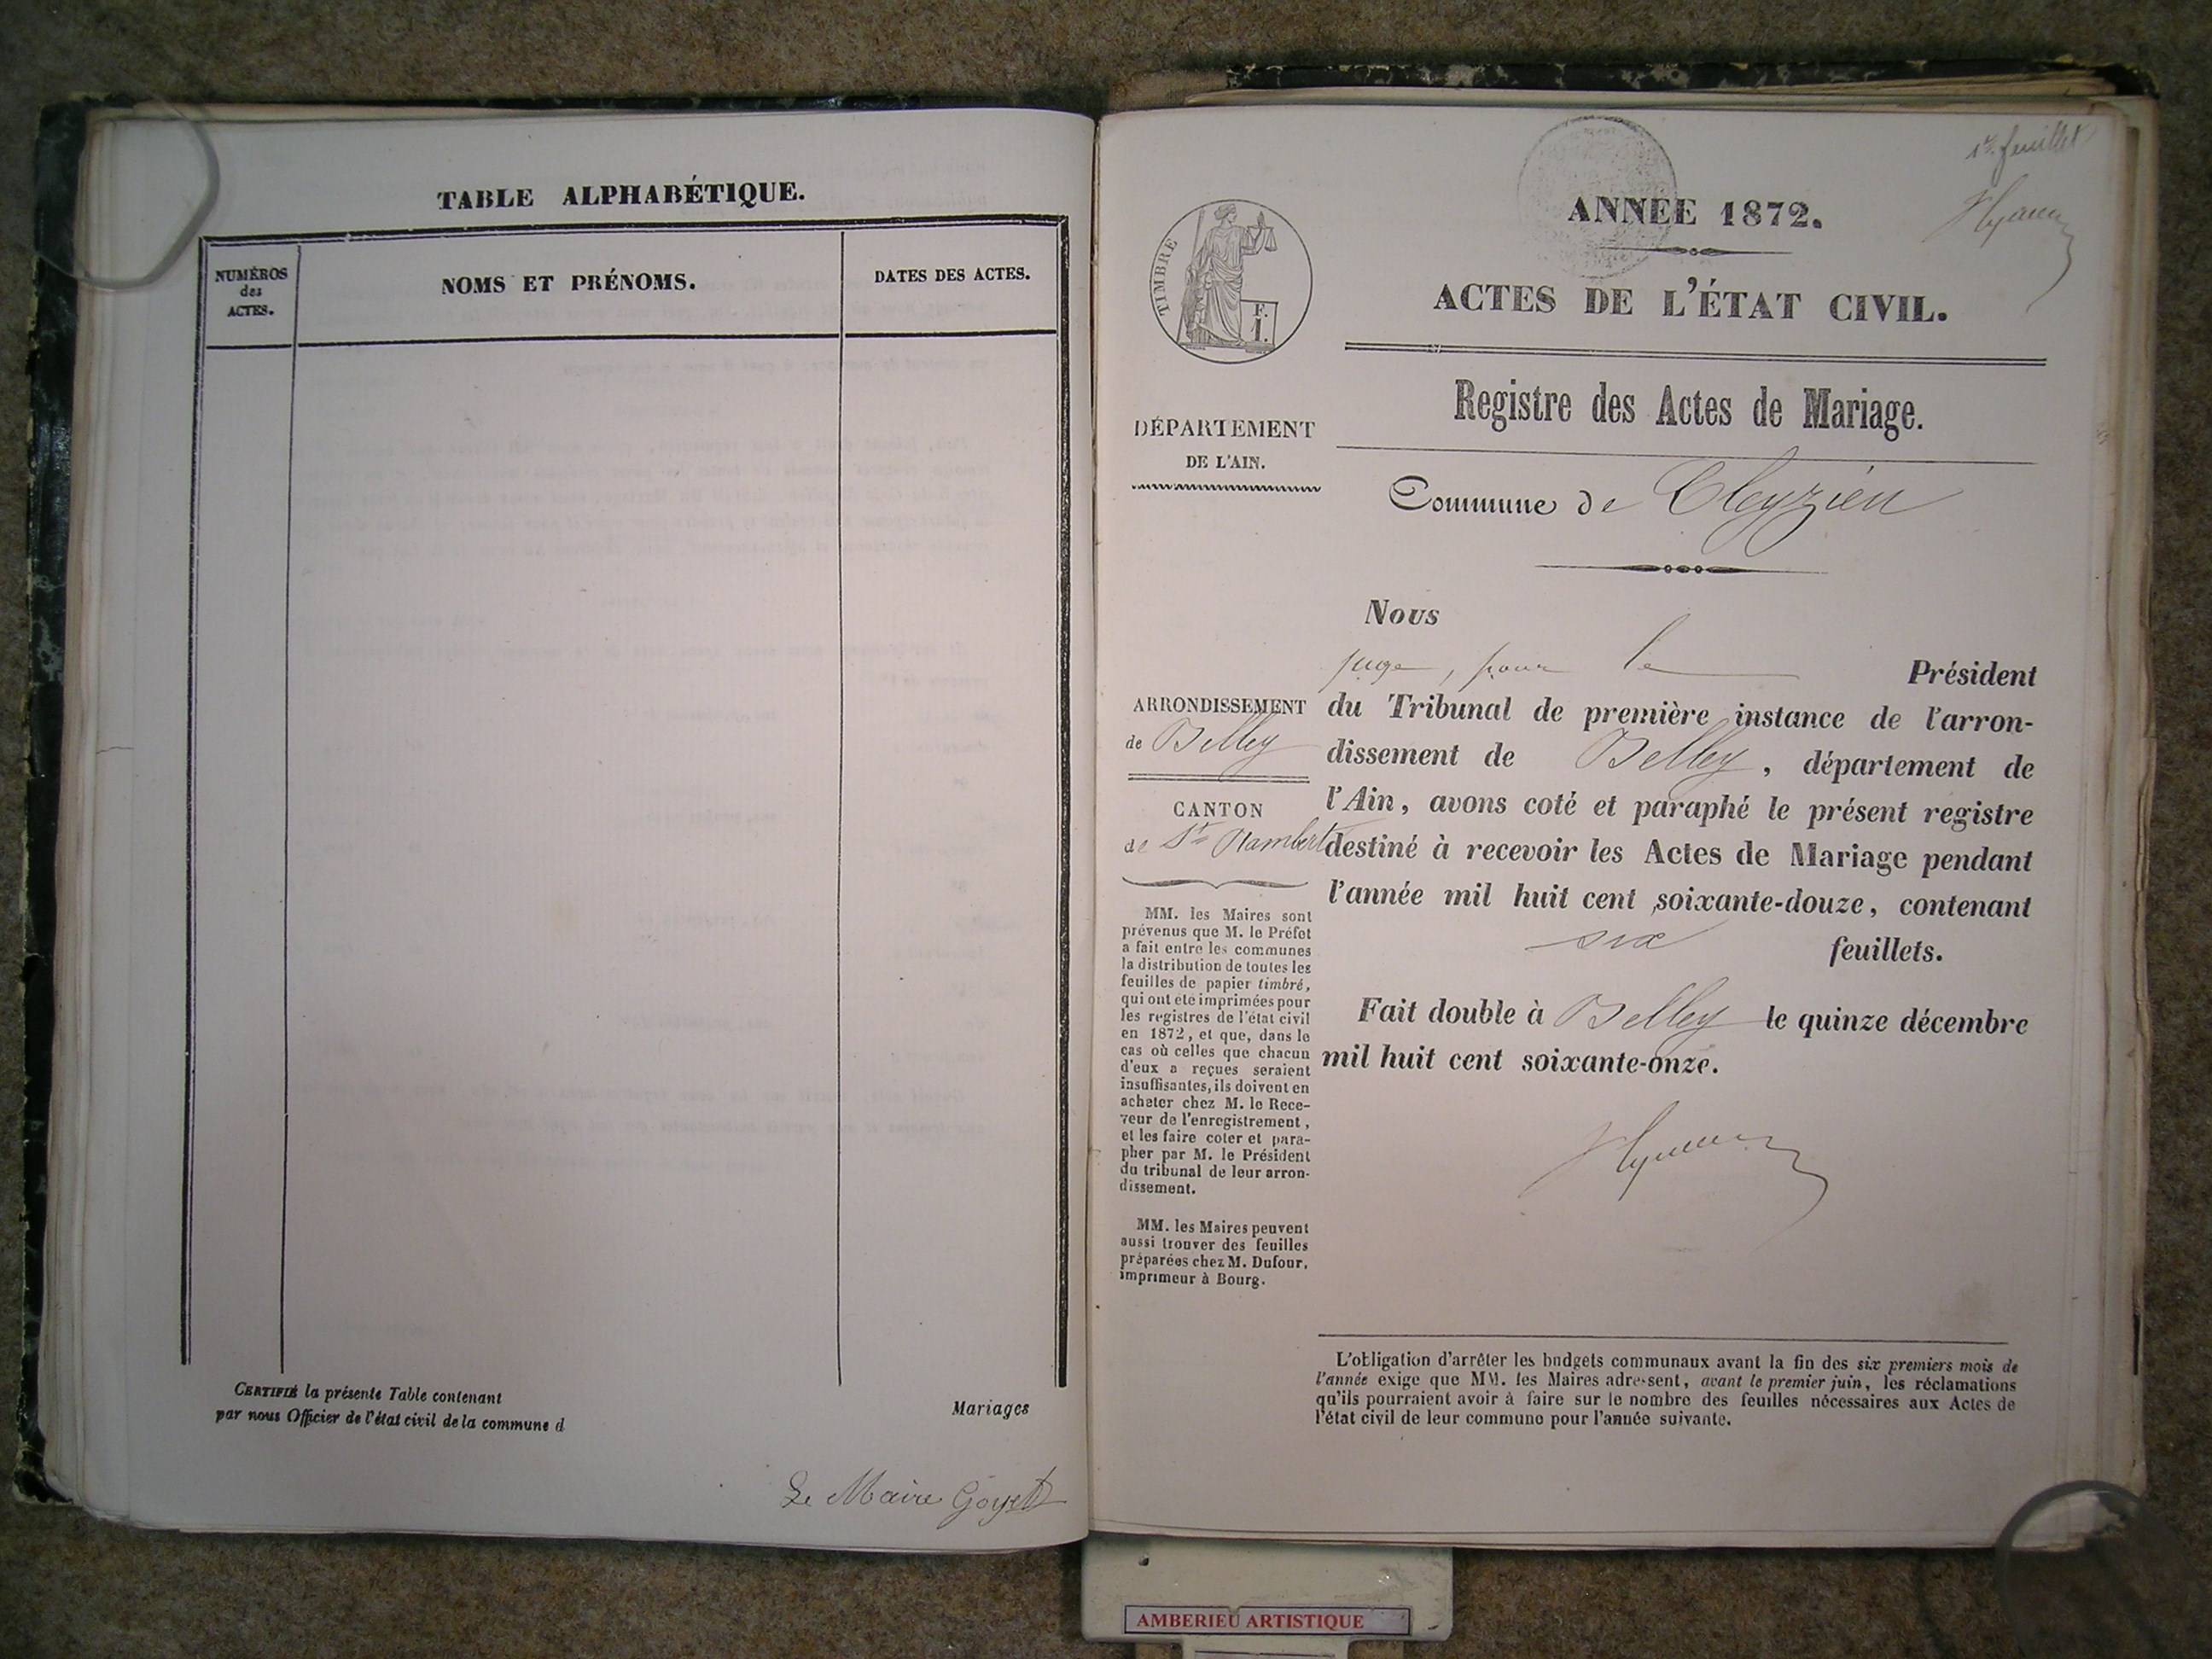 TABLE ALPHABÉTIQUE.
NUMÉROS
des
ACTES.
NOMS ET PRÉNOMS.
DATES DES ACTES.
CERTIFIÉ la présente Table contenant
Mariages
par nous Officier de l'état civil de la commune d
Le Maire Goyet
1er feuillet
ANNÉE 1872.
TIMBRE
F.
1.
ACTES DE L'ÉTAT CIVIL.
Registre des Actes de Mariage.
DÉPARTEMENT
DE L'AIN.
Commune de Cleyzieu
ARRONDISSEMENT
de Belley
CANTON
de St Rambert
MM. les Maires sont
prévenus que M. le Préfet
a fait entre les communes
la distribution de toutes les
feuilles de papier timbré,
qui ont été imprimées pour
les registres de l'état civil
en 1872, et que, dans le
cas où celles que chacun
d'eux a reçues seraient
insuffisantes, ils doivent en
acheter chez M. le Rece-
veur de l'enregistrement,
et les faire coter et para-
pher par M. le Président
du tribunal de leur arron-
dissement.
MM. les Maires peuvent
aussi trouver des feuilles
préparées chez M. Dufour,
imprimeur à Bourg.
Nous
juge, pour le Président
du Tribunal de première instance de l'arron-
dissement de Belley, département de
l'Ain, avons coté et paraphé le présent registre
destiné à recevoir les Actes de Mariage pendant
l'année mil huit cent soixante-douze, contenant
six feuillets.
Fait double à Belley le quinze décembre
mil huit cent soixante-onze.
L'obligation d'arrêter les budgets communaux avant la fin des six premiers mois de
l'année exige que MM. les Maires adressent, avant le premier juin, les réclamations
qu'ils pourraient avoir à faire sur le nombre des feuilles nécessaires aux Actes de
l'état civil de leur commune pour l'année suivante.
AMBERIEU ARTISTIQUE